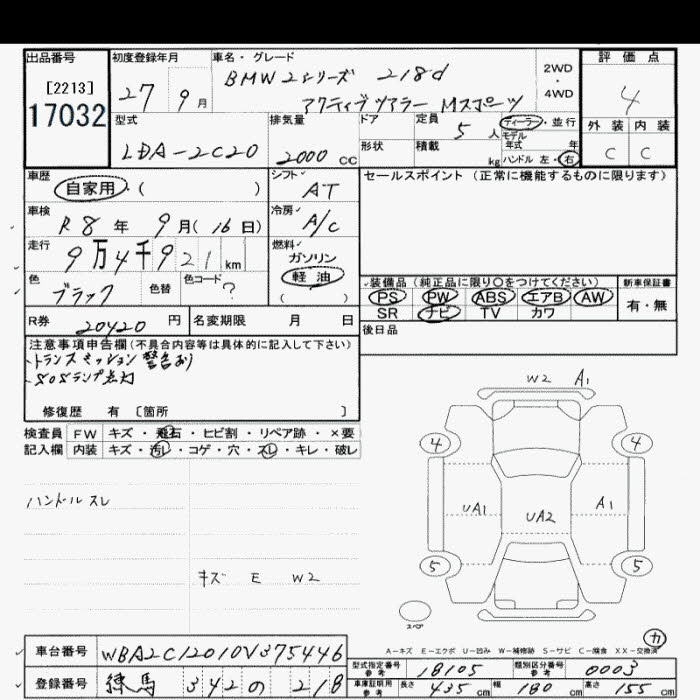 出品番号
[2213]
17032
初度登録年月
27 9月
車名・グレード
BMW 2シリーズ 218d
アクティブツアラー Mスポーツ
2WD
・
4WD
評価点
4
外装 内装
C C
型式
LDA-2C20
排気量
2000 cc
ドア
形状
定員
5 人
積載
kg
ディーラー・並行
モデル年式 年
ハンドル 左・右
車歴
自家用・( )
シフト
AT
セールスポイント(正常に機能するものに限ります)
車検
R8年 9月(16日)
冷房
A/C
走行
9万4千921km
燃料
ガソリン
軽油
( )
色
ブラック
色替
色コード
?
装備品(純正品に限り○をつけてください)
PS PW ABS エアB AW
SR ナビ TV カワ
新車保証書
有・無
R券 20420 円
名変期限 月 日
後日品
注意事項申告欄(不具合内容等は具体的に記入して下さい)
・トランスミッション警告あり
・SOSランプ点灯
修復歴 有 [箇所 ]
検査員 FW キズ・飛石・ヒビ割・リペア跡・×要
記入欄 内装 キズ・汚レ・コゲ・穴・スレ・キレ・破レ
ハンドルスレ
キズ E W2
W2 A1
4 4
UA1 UA2 A1
5 5
スペア
カ
A-キズ E-エクボ U-凹み W-補修跡 S-サビ C-腐食 XX-交換済
車台番号 WBA2C12010V375446
登録番号 練馬 342の 218
型式指定番号
参考
18105
類別区分番号
参考
0003
車庫証明用
参考
長さ 435 cm 幅 180 cm 高さ 155 cm